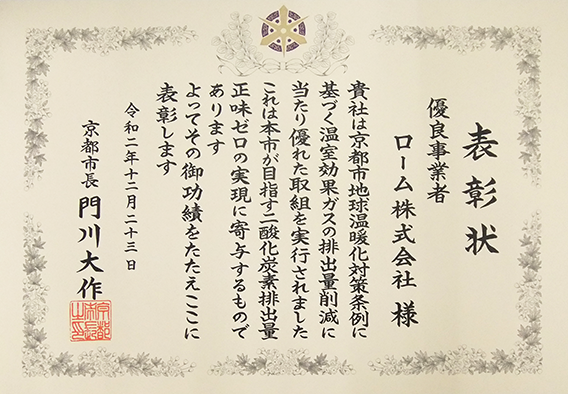 表彰状
優良事業者
ローム株式会社 様
貴社は京都市地球温暖化対策条例に
基づく温室効果ガスの排出量削減に
当たり優れた取組を実行されました
これは本市が目指す二酸化炭素排出量
正味ゼロの実現に寄与するもので
あります
よってその御功績をたたえここに
表彰します
令和二年十二月二十三日
京都市長 門川大作
京都市長之印